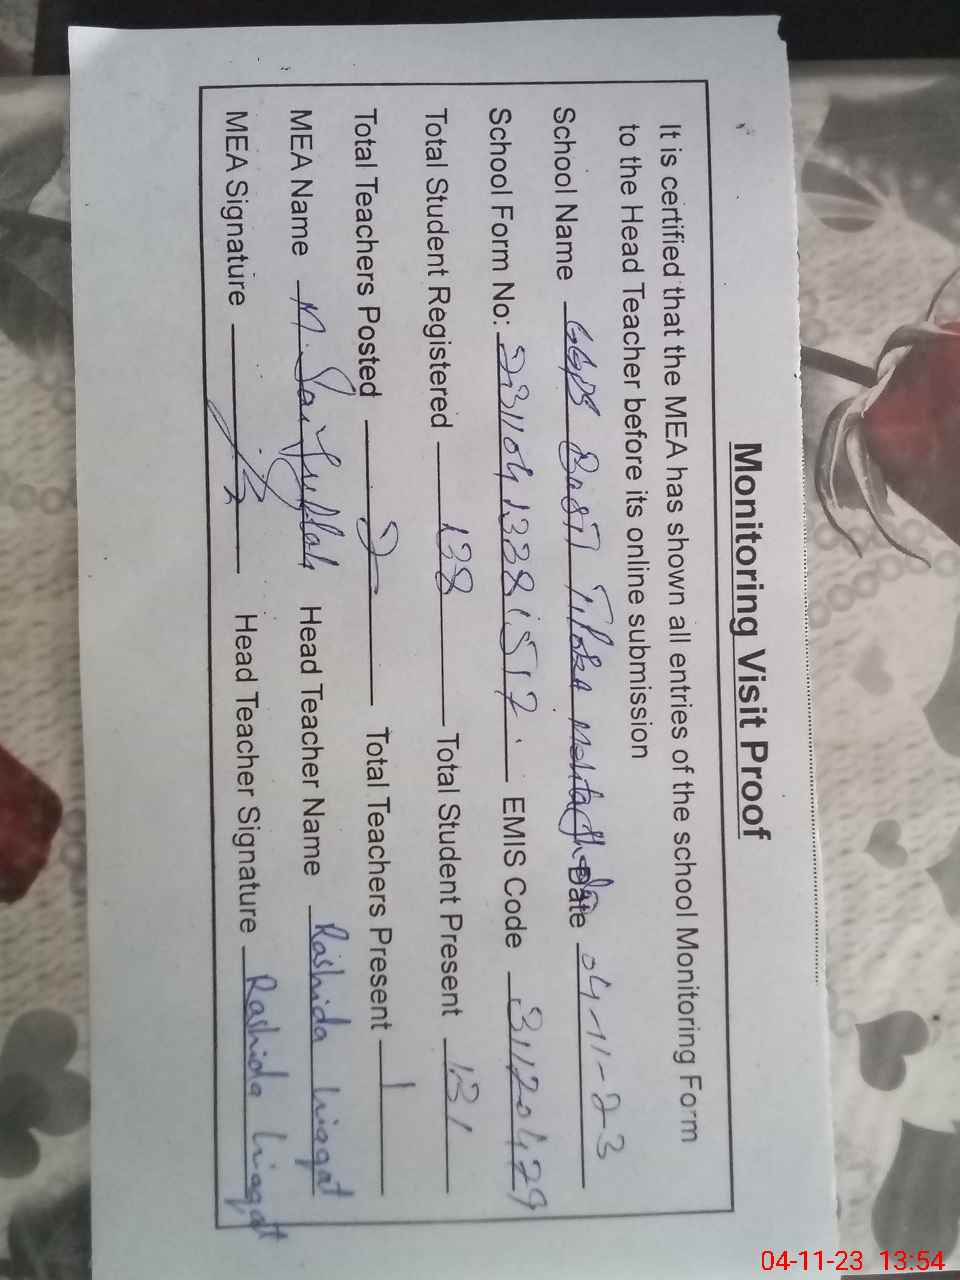 Monitoring Visit Proof
It is certified that the MEA has shown all entries of the school Monitoring Form
to the Head Teacher before its online submission
School Name GGPS Basti Date 04-11-23
School Form No: EMIS Code 31120479
Total Student Registered 138 Total Student Present 131
Total Teachers Posted 2 Total Teachers Present 1
MEA Name M. Saifullah Head Teacher Name Rashida Liaqat
MEA Signature Head Teacher Signature Rashida Liaqat
04-11-23 13:54